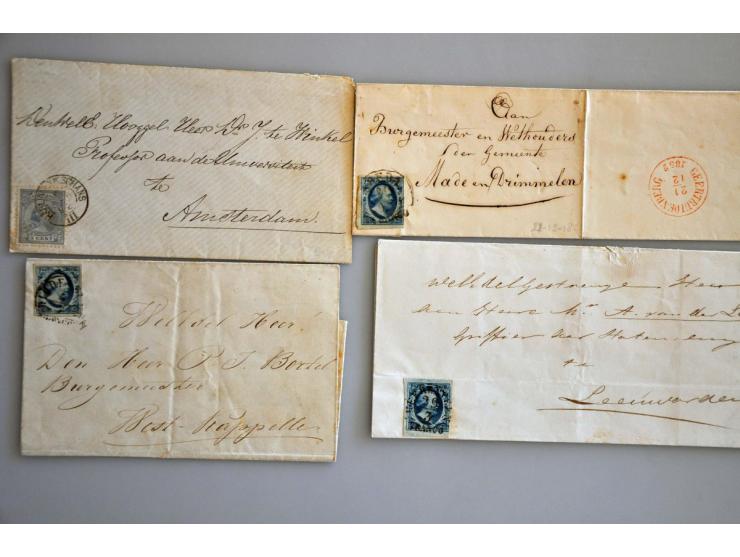 Den WelE. Hooggel. Heer Dr. J. te Winkel
Professor aan de Universiteit
te
Amsterdam.
5 CENT
Aan
Burgemeester en Wethouders
der Gemeente
Made en Drimmelen
GEERTRUIDENBERG
21
12
Weledel Heer!
Den Heer P. J.
Burgemeester
West-Kappelle
Heer
den Heere Mr. A. van der
Griffier der Staten
te
Leeuwarden